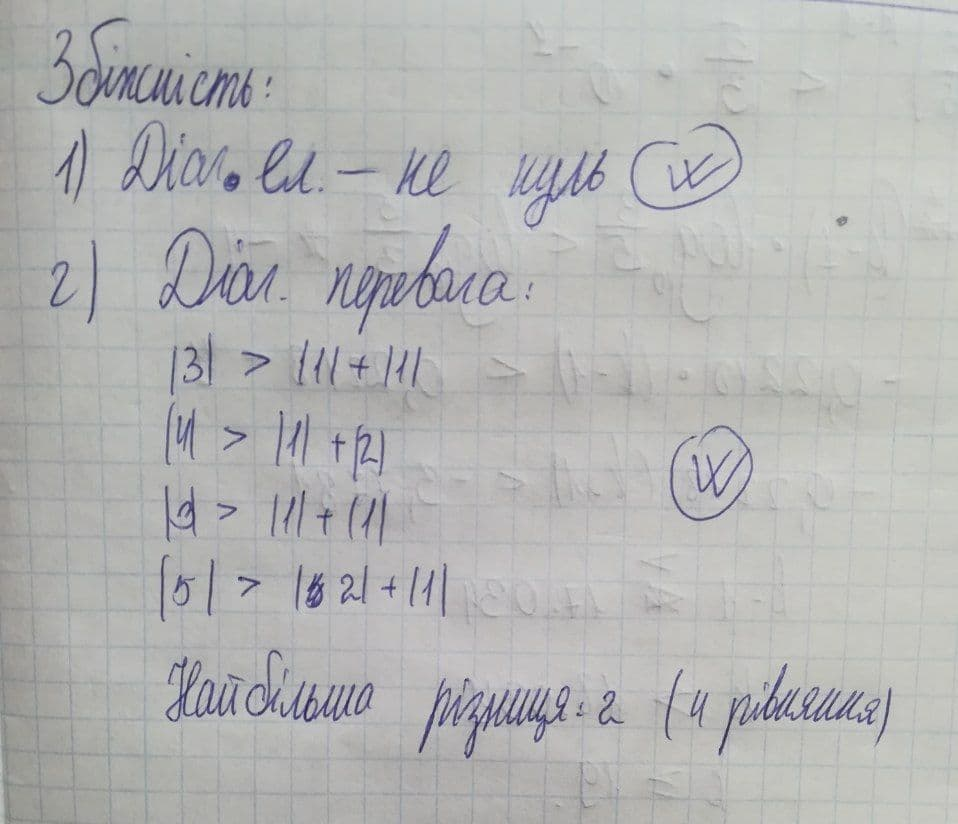 Збіжність:
1) Діаг. ел. – не нуль
2) Діаг. перевага:
|3| > |1| + |1|
|4| > |1| + |2|
|3| > |1| + |1|
|5| > |2| + |1|
Найбільша різниця: 2 (4 рівняння)